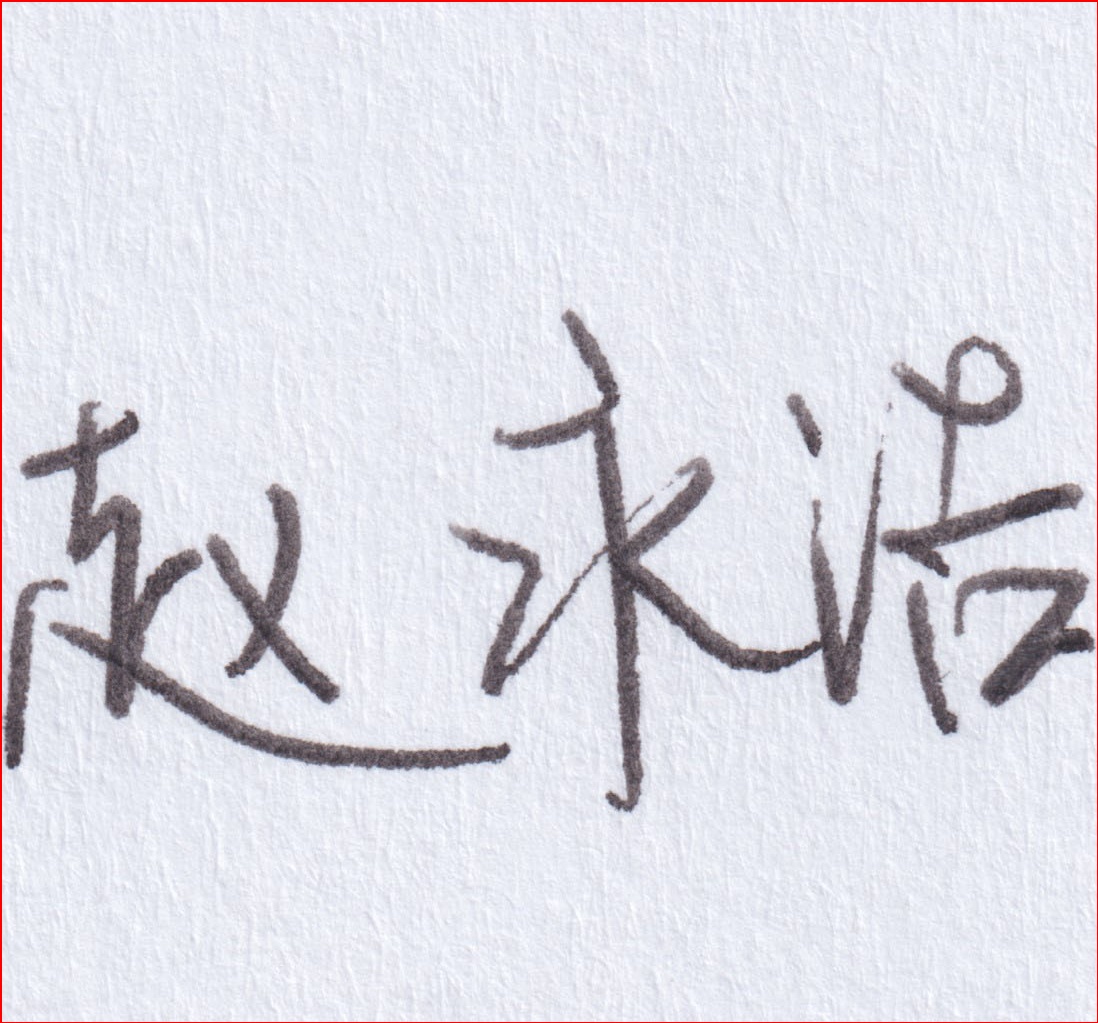 赵永浩